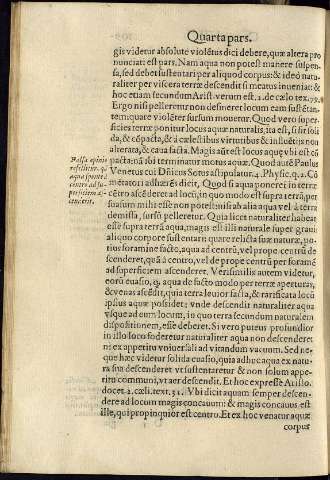 Quarta pars.
gis videtur absolute violẽtus dici debere, quæ altera pro
nunciati est pars. Nam aqua non potest manere suspen-
sa, sed debet sustentari per aliquod corpus: & ideo natu-
raliter per viscera terræ descendit si meatus inueniat: &
hoc etiam secundum Arist. verum est, 2. de cælo tex.
Ergo nisi pelleretur non desineret locum eam sustẽtan-
tem: quare violẽter sursum mouetur. Quod vero super-
ficies terræ ponitur locus aquæ naturalis, ita est, si sit soli
da, & cõpacta, & à cælestibus virtutibus & influẽtiis non
alterata, & caua facta. Magis aũt est locus aquæ vbi est cõ
pacta: nã ibi terminatur motus aquæ. Quod autẽ Paulus
Venetus cui Dñicus Sotus astipulatur. 4. Physic. q. 2. Cõ
metatori adhærẽs dicit, Quod si aqua poneret in terræ
cẽtro ascẽderet ad locũ, in quo modo est supra terrã, per
suasum mihi esse non potest: nisi fossa alia aqua vel à terra
demissa, sursũ pelleretur. Quia licet naturaliter habeat
esse supra terrã aqua, magis est illi naturale super graui
aliquo corpore sustentari: quare relicta suæ naturæ, po-
tius foramine facto, aqua ad centrũ, vel prope centrũ de
scenderet, quã à centro, vel de prope centrũ per foramẽ
ad superficiem ascenderet. Verisimilis autem videtur,
eorũ euasio, q̃ aqua de facto modo per terræ aperturas,
& venas ascẽdit, quia terra leuior facta, & rarificata locũ
ipsius aquæ possidet; vnde descendit naturaliter aqua
vsque ad eum locum, in quo terra secundum naturalem
dispositionem, esse deberet. Si vero puteus profundior
in illo loco foderetur naturaliter aqua non descenderet
ni ex appetitu vniuersali ad vitandum vacuum. Sed ne-
que hæc videtur solida euasio, quia adhuc aqua ex natu
ra sua descenderet vt sustentaretur & non solum appe-
titu communi, vt aer descendit. Et hoc expresse Aristo.
docet 2. cæli. text. 31. Vbi dicit aquam semper descen-
dere ad locum magis concauum: & magis concauus est
ille, qui propinquior est centro. Et ex hoc venatur aquæ
corpus
Falsa opinio
refellitur, q
aqua sponte à
centro ad su-
perficiem a-
scẽderet.